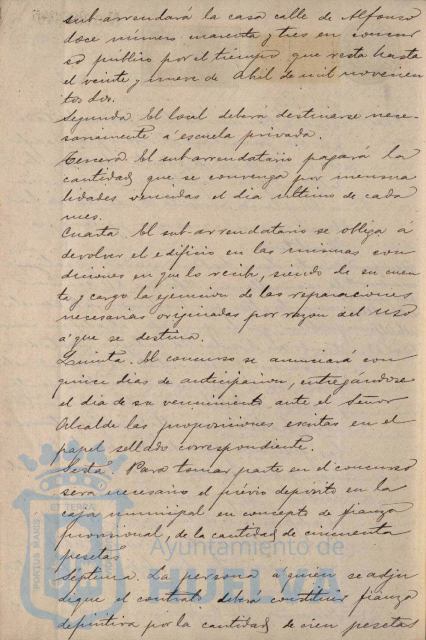 sub-arrendará la casa calle de Alfonso
doce número cuarenta y tres en concur
so público por el tiempo que resta hasta
el veinte y nueve de Abril de mil novecien
tos dos.
Segunda. El local deberá destinarse nece-
sariamente á escuela privada.
Tercera. El sub-arrendatario pagará la
cantidad que se convenga por mensua
lidades vencidas el dia último de cada
mes.
Cuarta. El sub-arrendatario se obliga á
devolver el edificio en las mismas con
diciones en que lo recibe, siendo de su cuen
ta y cargo la ejecucion de las reparaciones
necesarias originadas por razon del uso
á que se destina.
Quinta. El concurso se anunciará con
quince dias de anticipacion, entregándose
el dia de su vencimiento ante el Señor
Alcalde las proposiciones escritas en el
papel sellado correspondiente.
Sesta. Para tomar parte en el concurso
será necesario el prévio depósito en la
caja municipal en concepto de fianza
provisional, de la cantidad de cincuenta
pesetas.
Séptima. La persona á quien se adju
dique el contrato deberá constituir fianza
definitiva por la cantidad de cien pesetas
PORTUS MARIS
ET TERRAE
Ayuntamiento de
HUELVA